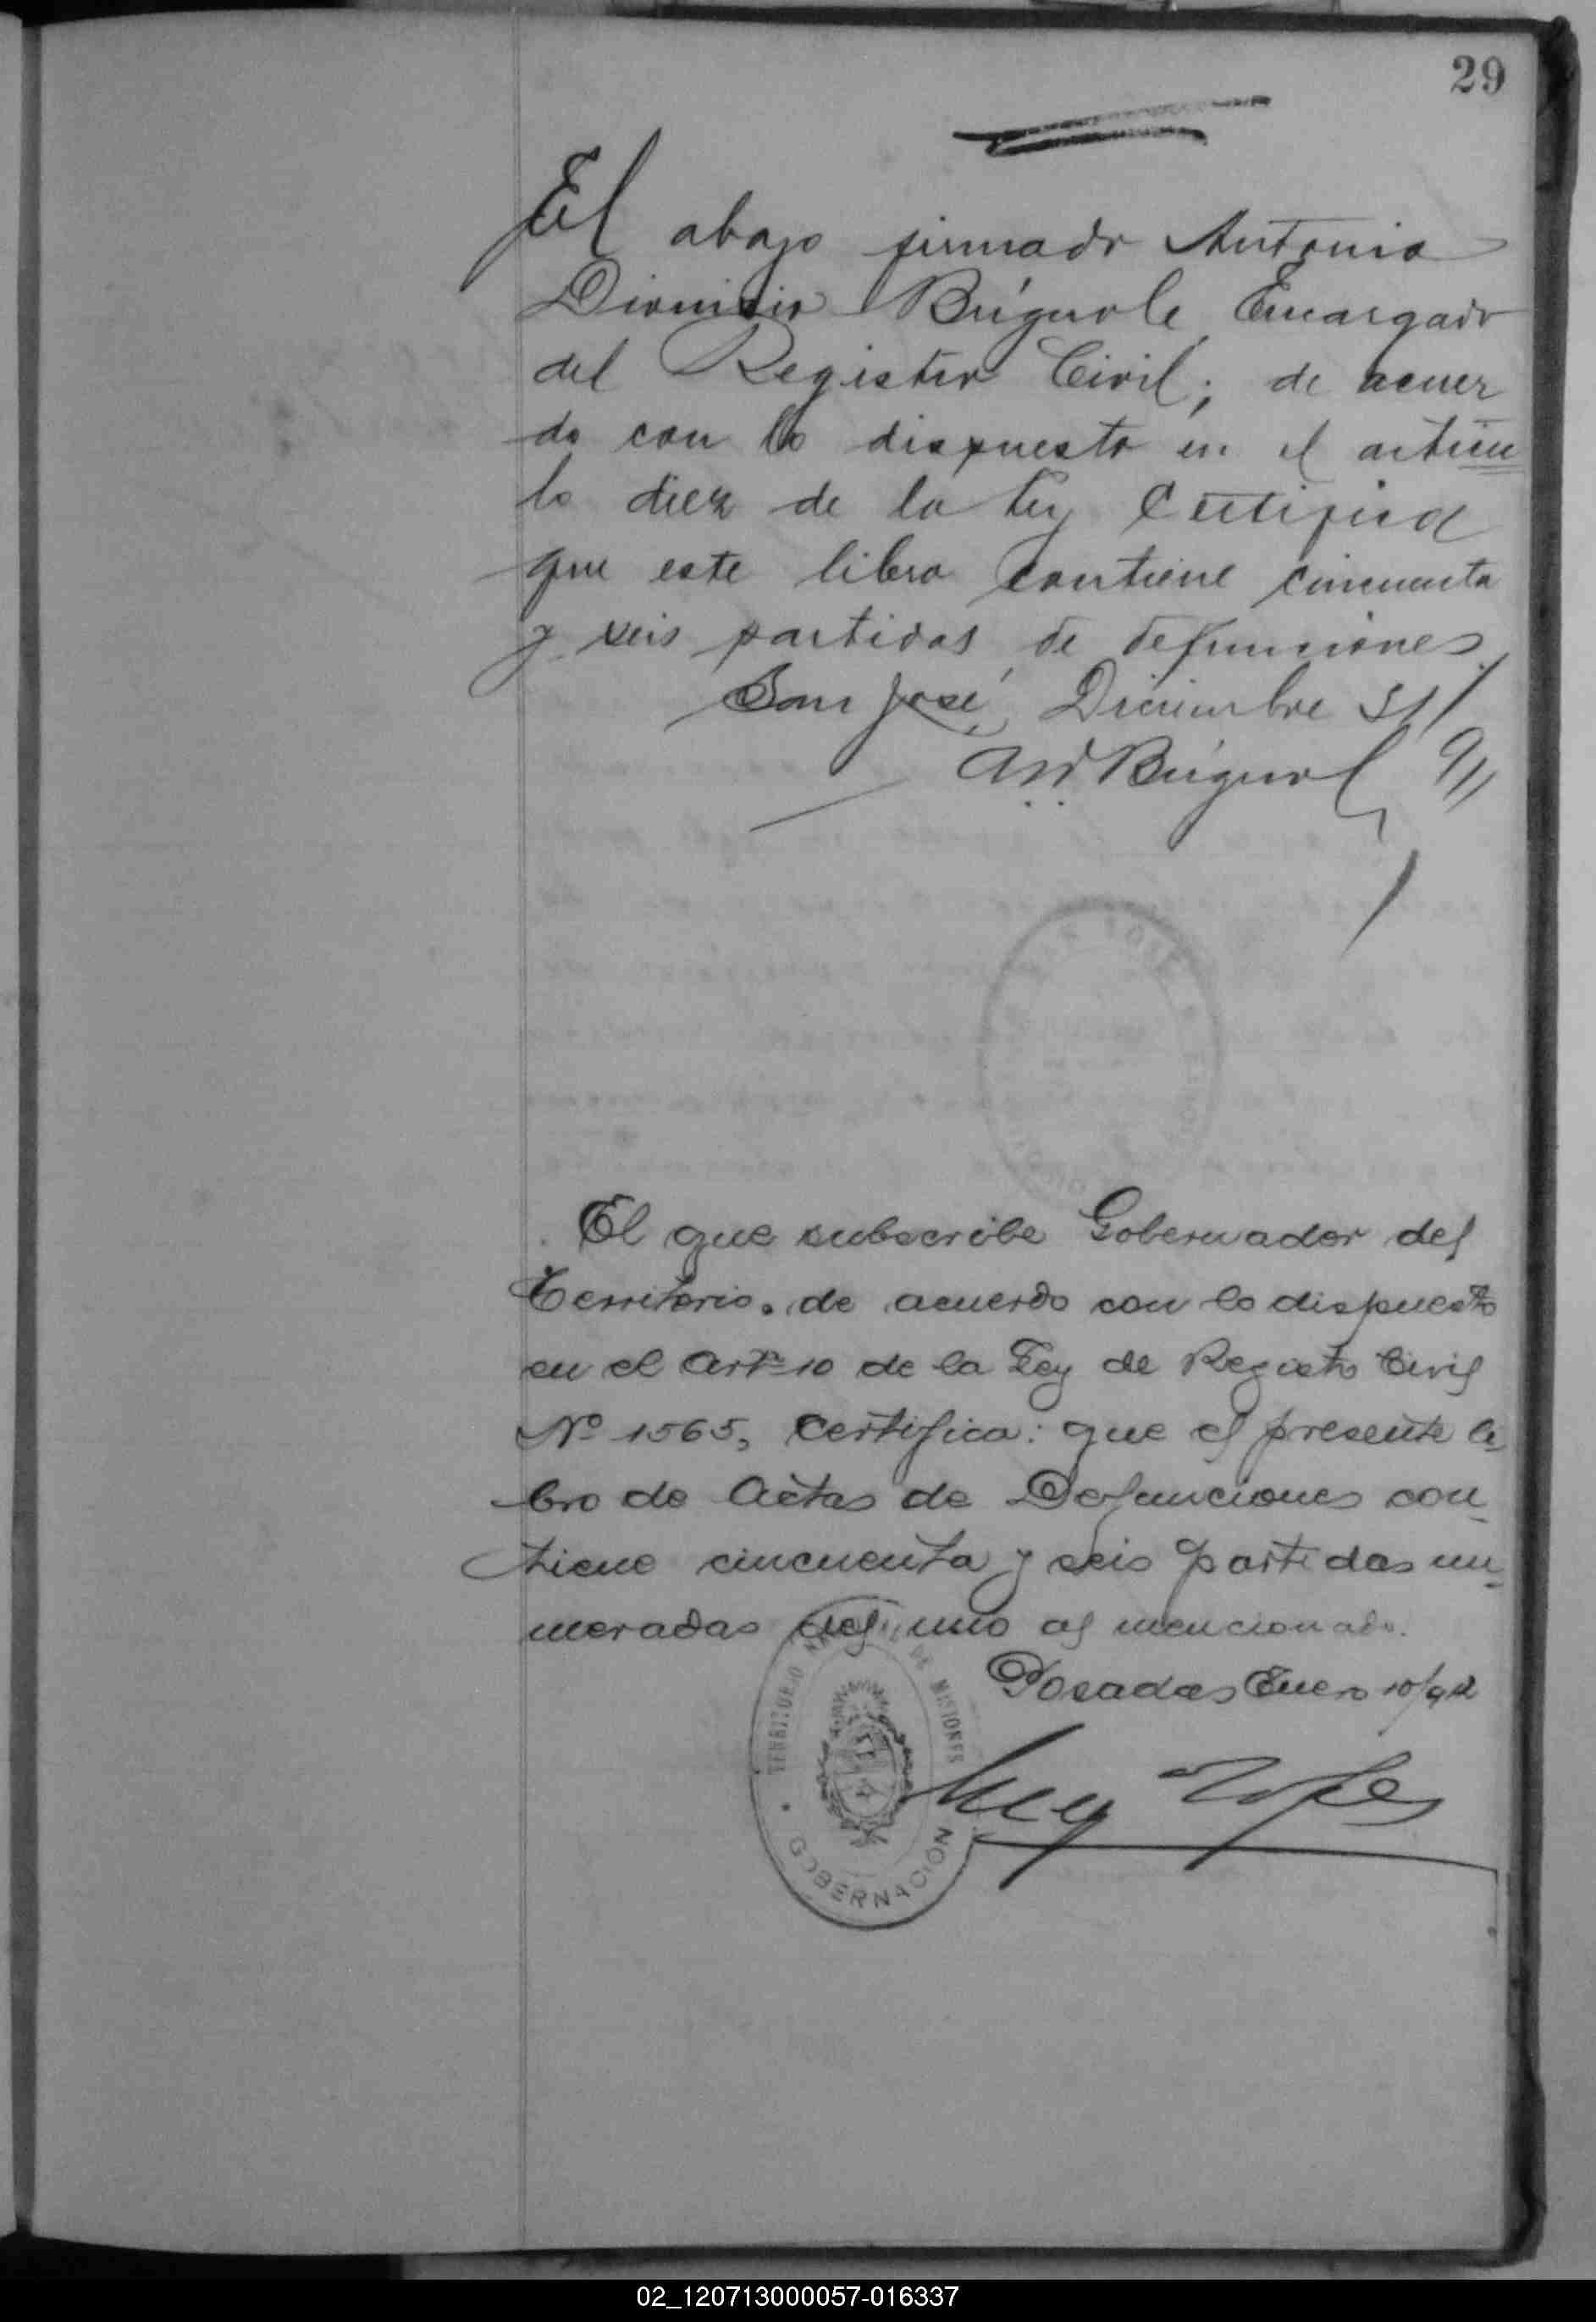 29
El abajo firmado Antonio
Dionisio Brígnole, Encargado
del Registro Civil; de acuer
do con lo dispuesto en el artícu
lo diez de la ley Certifica
que este libro contiene cincuenta
y seis partidas de defunciones.
San José, Diciembre 31/
91
SAN JOSÉ
El que subscribe Gobernador del
Territorio. de acuerdo con lo dispuesto
en el Art. 10 de la Ley de Registro Civil
Nº 1565, certifica: que el presente li
bro de Actas de Defunciones con
tiene cincuenta y seis partidas nu
meradas del uno al mencionado.
Posadas Enero 10/92
TERRITORIO NACIONAL DE MISIONES
GOBERNACION
02_120713000057-016337